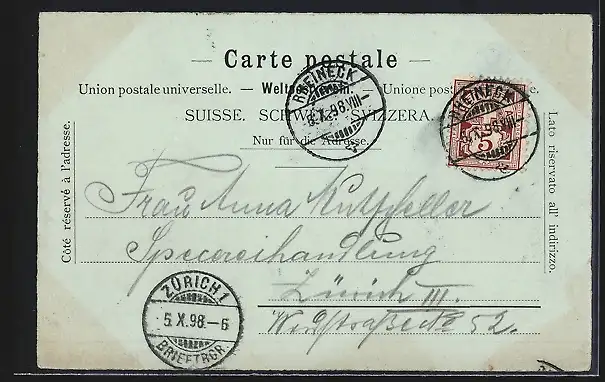 — Carte postale —
Union postale universelle. — Weltpostverein. — Unione postale
SUISSE. SCHWEIZ. SVIZZERA.
Nur für die Adresse.
Côté réservé à l'adresse.
Lato riservato all' indirizzo.
RHEINECK
5.X.98.VIII–
RHEINECK
5
Frau Anna
Specereihandlung
Zürich III.
52.
ZÜRICH 1
5.X.98.–6
BRIEFTRGR.